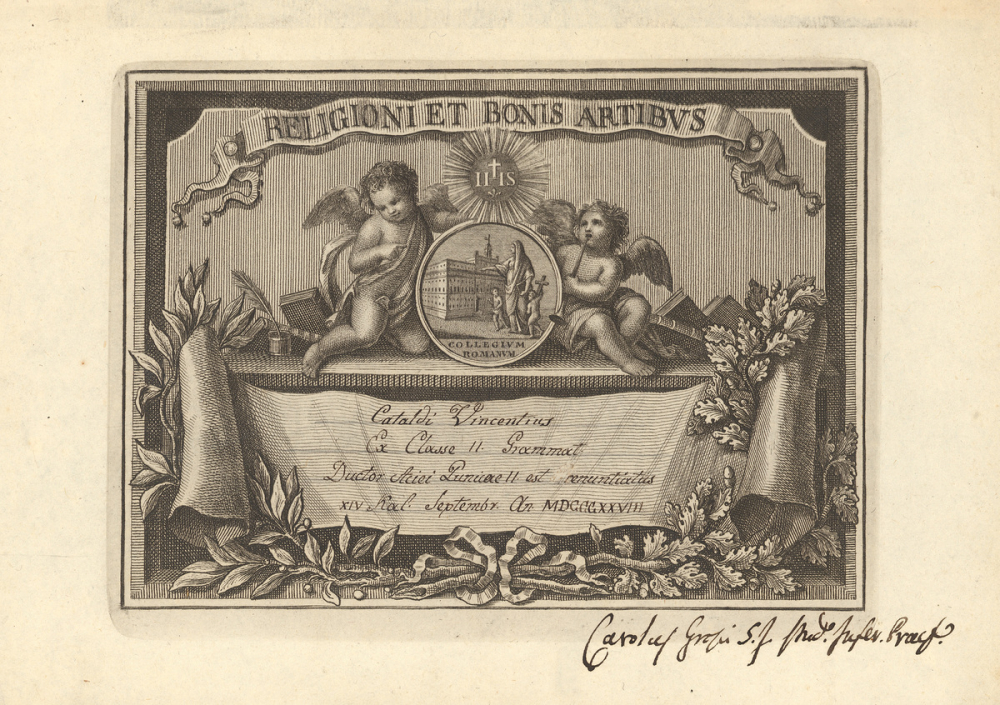 RELIGIONI ET BONIS ARTIBVS
IHS
COLLEGIVM
ROMANVM
Cataldi Vincentius
Ex Classe II Grammat
Ductor Aciei Punicae II est renuntiatus
XIV Kal Septembr An MDCCCXXVIIII
Carolus S. J. Stud. Infer. Praef.